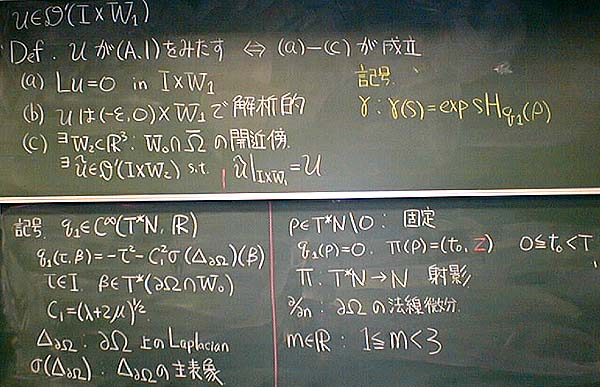 u∈𝒟'(I×W₁)
Def. uが(A.1)をみたす ⇔ (a)-(c)が成立
(a) Lu=0 in I×W₁
(b) uは(-ε,0)×W₁で解析的
(c) ∃W₂⊂ℝ³: W₀∩Ω̄の開近傍
∃ũ∈𝒟'(I×W₂) s.t. ũ|_{I×W₁}=u
記号.
γ: γ(s)=exp sH_{q₁}(ρ)
記号. q₁∈C^∞(T*N, ℝ)
q₁(τ,β)=-τ²-C₁²σ(Δ_{∂Ω})(β)
τ∈I β∈T*(∂Ω∩W₀)
C₁=(λ+2μ)^{1/2}
Δ_{∂Ω}: ∂Ω上のLaplacian
σ(Δ_{∂Ω}): Δ_{∂Ω}の主表象
ρ∈T*N\0: 固定
q₁(ρ)=0. π(ρ)=(t₀, z) 0≦t₀<T
π: T*N→N 射影
∂/∂n: ∂Ωの法線微分.
m∈ℝ: 1≦m<3